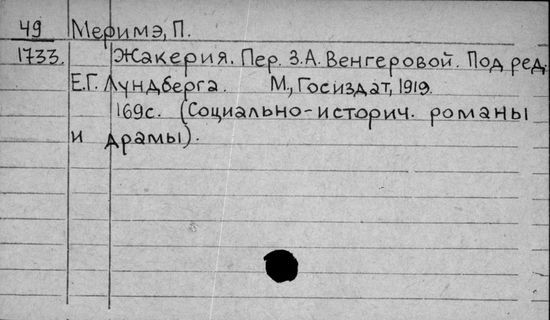 49 Меримэ, П.
1733. Жакерия. Пер. З.А. Венгеровой. Под ред.
Е.Г. Лундберга. М., Госиздат, 1919.
169с. (Социально-историч. романы
и драмы).